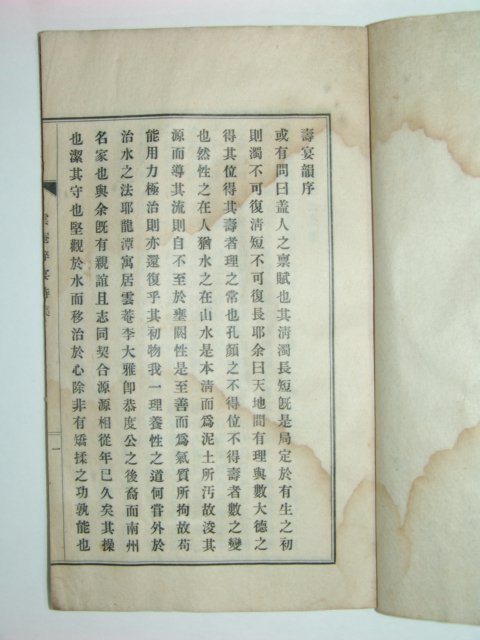 壽宴韻序
或有問曰盖人之禀賦也其淸濁長短旣是局定於有生之初
則濁不可復淸短不可復長耶余曰天地間有理與數大德之
得其位得其壽者理之常也孔顔之不得位不得壽者數之變
也然性之在人猶水之在山水是本淸而爲泥土所汚故浚其
源而導其流則自不至於壅閼性是至善而爲氣質所拘故苟
能用力極治則亦還復乎其初物我一理養性之道何嘗外於
治水之法耶龍潭寓居雲菴李大雅卽恭度公之後裔而南州
名家也與余旣有親誼且志同契合源源相從年已久矣其操
也潔其守也堅觀於水而移治於心除非有矯揉之功孰能也
一